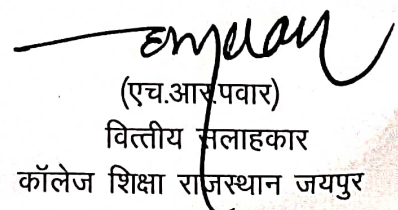 (एच.आर.पवार)
वित्तीय सलाहकार
कॉलेज शिक्षा राजस्थान जयपुर